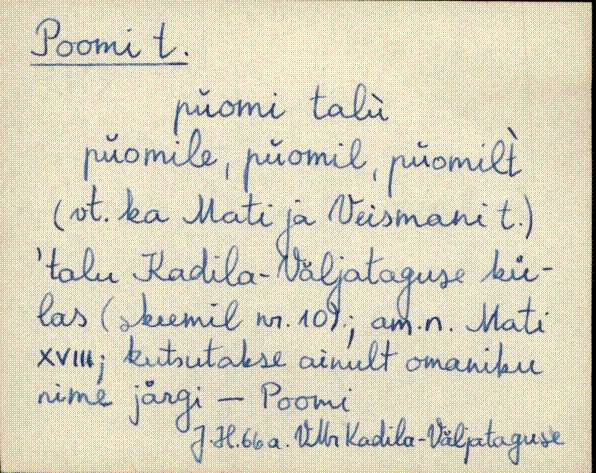 Poomi t.
pŭomi talù
pŭomile, pŭomil, pŭomil̀t
(vt. ka Mati ja Veismani t.)
'talu Kadila-Väljataguse kü-
las (skeemil nr. 10); am.n. Mati
XVIII; kutsutakse ainult omaniku
nime järgi — Poomi
J.H. 66 a. VMr Kadila-Väljataguse